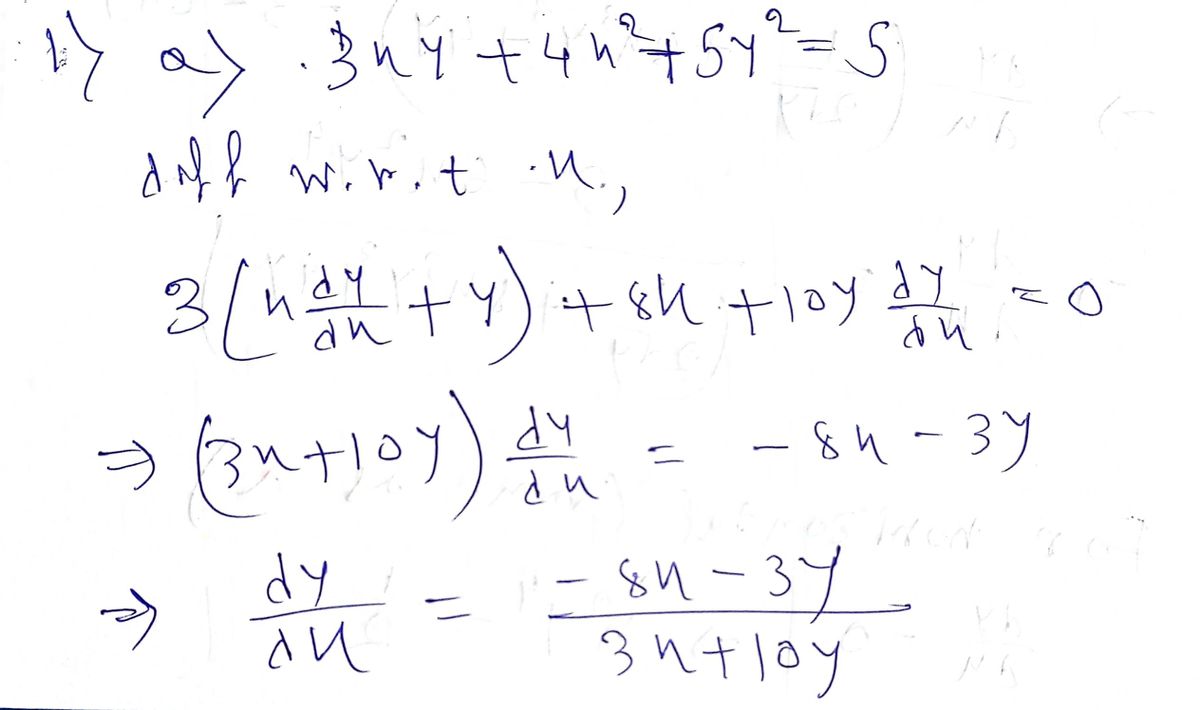 1) a) 3xy + 4x² + 5y² = 5
diff w.r.t x,
3(x dy/dx + y) + 8x + 10y dy/dx = 0
⇒ (3x+10y) dy/dx = -8x - 3y
⇒ dy/dx = (-8x - 3y)/(3x+10y)